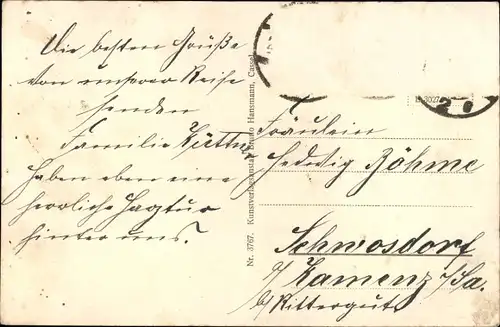 Die besten Grüße
von unserer Reise
senden
Familie Hüttn
Haben eben eine
herrliche Tagtur
hinter uns.
Nr. 3767. Kunstverlagsanstalt Bruno Hansmann, Cassel
Fräulein
Hedwig Böhme
Schwosdorf
b/ Kamenz i/Sa.
b/ Rittergut